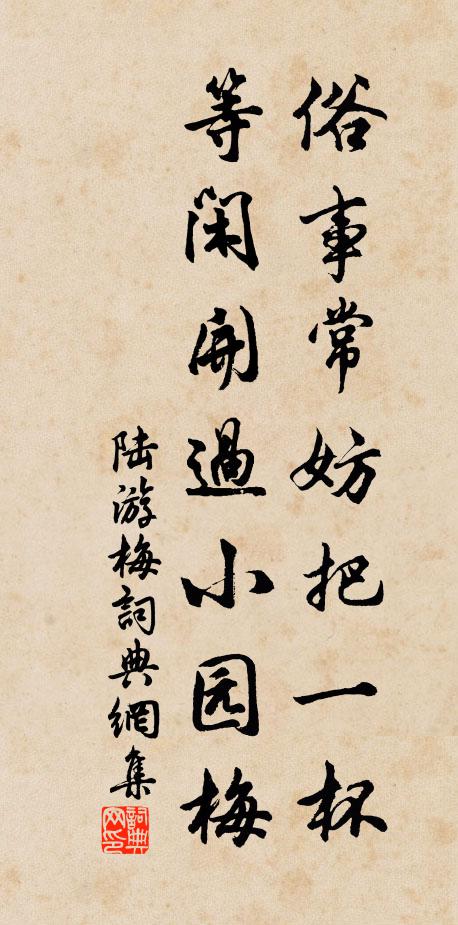 俗事常妨把一杯
等闲開過小园梅
陆游梅詞典網集
詞典网印